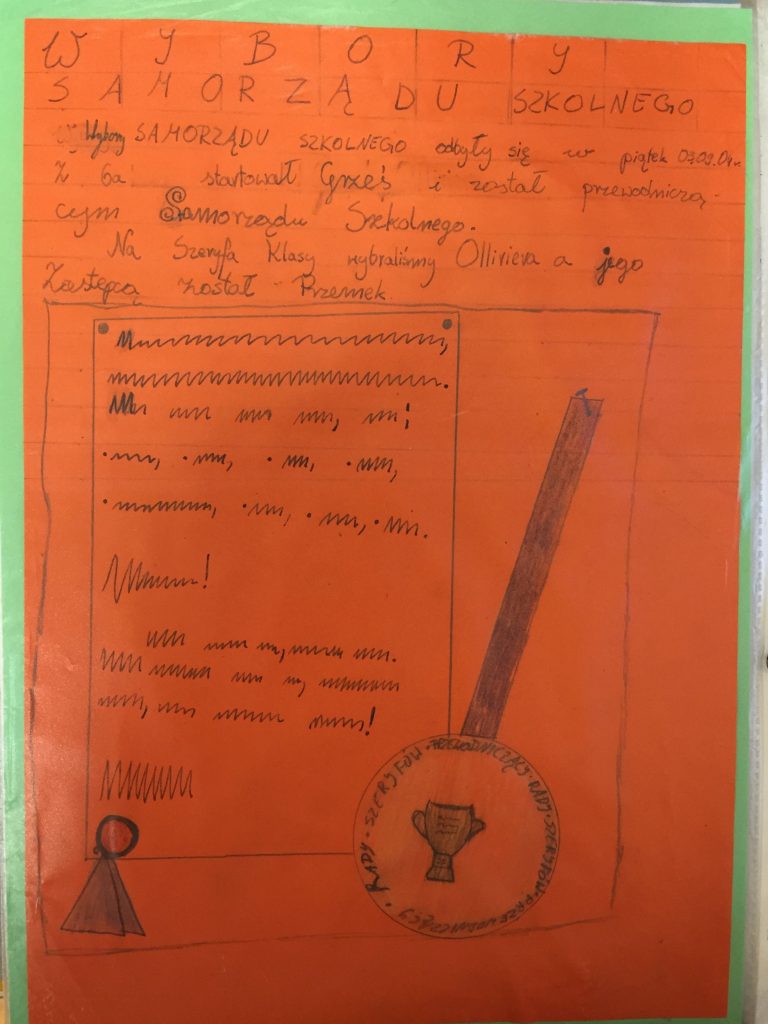 WYBORY
SAMORZĄDU SZKOLNEGO
Wybory SAMORZĄDU SZKOLNEGO odbyły się w piątek
Z 6a startował Grześ i został przewodniczą-
cym Samorządu Szkolnego.
Na Szeryfa Klasy wybraliśmy Olliviera a jego
Zastępcą został Przemek
RADY · SZERYFÓW · PRZEWODNICZĄCY · RADY · SZERYFÓW · PRZEWODNICZĄCY ·